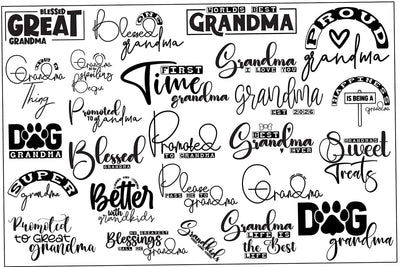 BLESSED
GREAT
GRANDMA
Blessed
grandma
WORLDS BEST
GRANDMA
PROUD
grandma
Grandma
Thing
Grandma
FIRST
Time
grandma
Grandma
I LOVE YOU
Grandma
EST 2026
HAPPINESS
IS BEING A
grandma
Promoted
TO grandma
DOG
GRANDMA
Blessed
GRANDMA
Promoted
TO GRANDMA
BEST
Grandma
EVER
GRANDMAS
Sweet
Treats
SUPER
grandma
Better
with
grandkids
Please
PASS ME TO
Grandma
Grandma
Promoted
TO GREAT
grandma
MY GREATEST
Blessings
CALL ME
Grandma
Grandkids
Grandma
LIFE IS
the Best
LIFE
DOG
grandma